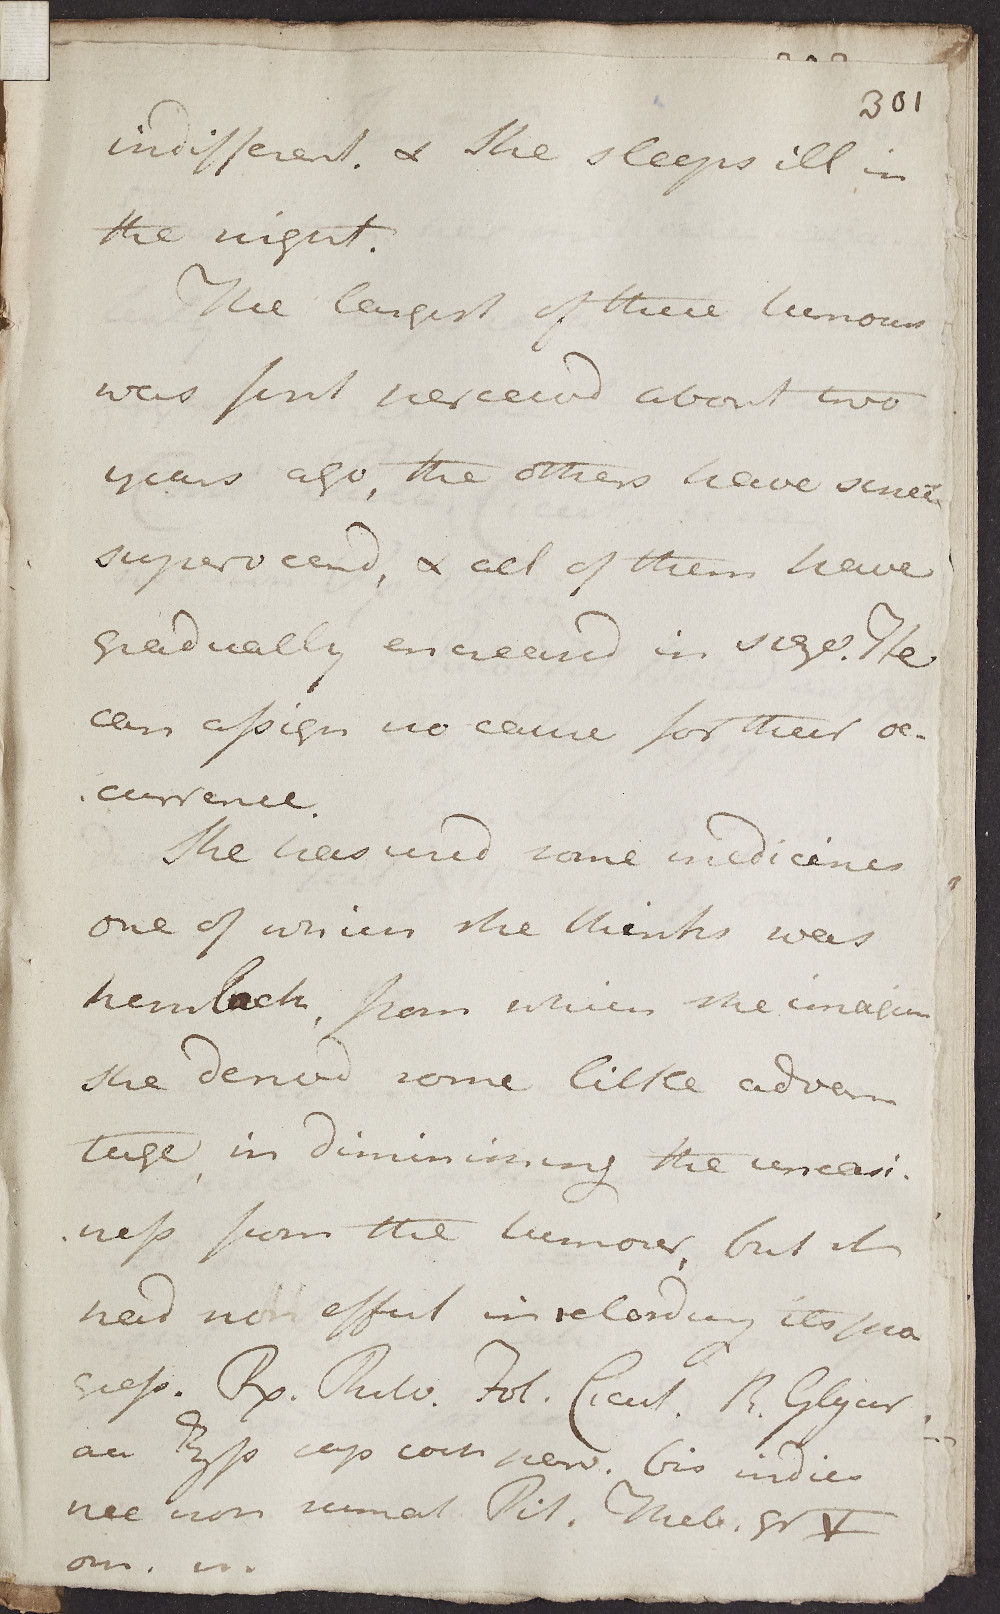 301
indifferent. & She sleeps ill in
the night.
The largest of these tumours
was first perceived about two
years ago, the others have since
supervened, & all of them have
gradually encreased in size. She
can assign no cause for their oc-
-currence.
She has used some medicines
one of which she thinks was
hemlock, from which she imagines
she derived some little advan
tage, in diminishing the uneasi-
-ness from the tumour, but it
had no effect in retarding its pro
gress. Rx. Pulv. Fol. Cicut. R. Glycir
aa ʒss cap coch parv. bis indies
nec non sumat Pil. Theb. gr V
om. n.